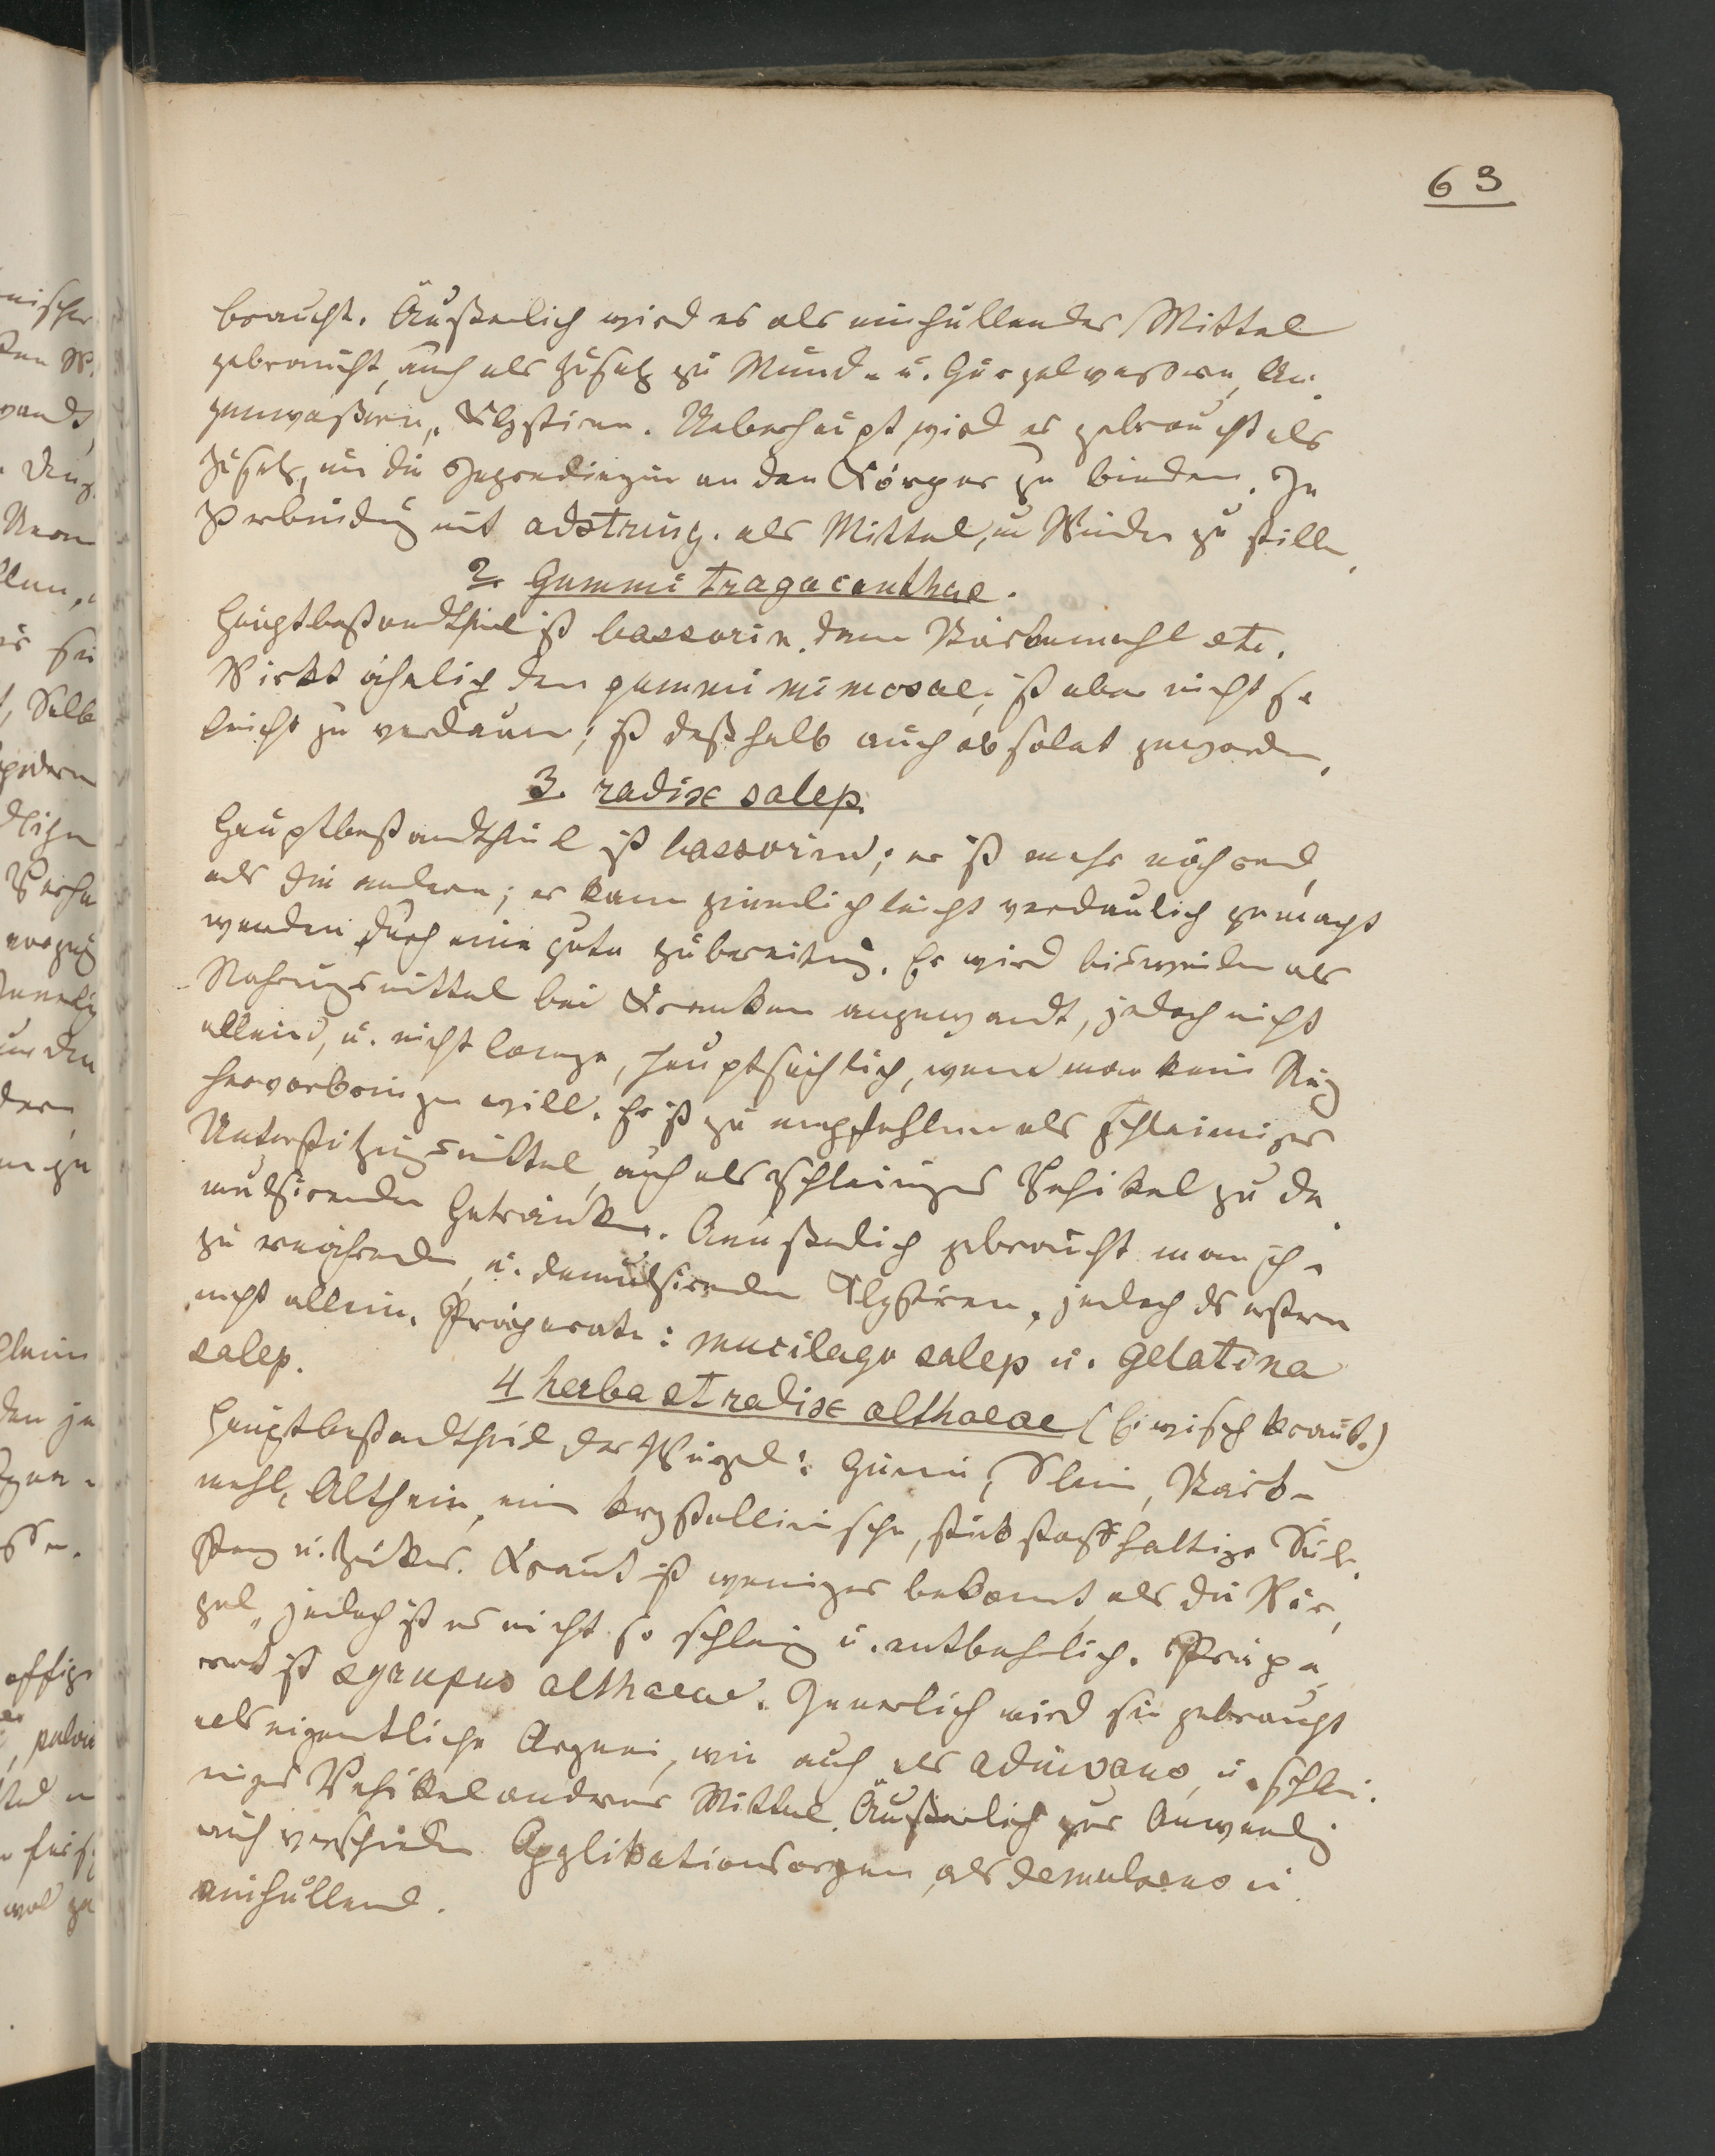 63
braucht. Äußerlich wird es als einhüllendes Mittel
gebraucht, auch als Zusatz zu Mund- u. Gurgelwassern, Au-
genwaßern, Klystiren. Ueberhaupt wird es gebraucht als
Zusatz, um die Ingredienzien an den Körper zu binden. In
Verbindug mit adstring. als Mittel, um Wunden zu stillen.
2. Gummi tragacanthae.
Hauptbestandtheil ist bassorin, dann Stärkemehl etc.
Wirkt ähnlich dem gummi mimosae, ist aber nicht so
leicht zu verdauen; ist deßhalb auch obsolet geworden.
3. radix salep.
Hauptbestandtheil ist bassorin; er ist mehr nährend,
als die andern; er kann ziemlich leicht verdaulich gemacht
werden durch eine gute Zubereitung. Er wird bisweilen als
Nahrungsmittel bei Kranken angewandt, jedoch nicht
allein, u. nicht lange, hauptsächlich, wenn man kein
hervorbringen will. Er ist zu empfehlen als schleimiges
Unterstützungsmittel, auch als schleimiges Vehikel zu de-
mulsirenden Getränken. Aeußerlich gebraucht man ihn
zu ernährenden, u. demulsirenden Klystiren, jedoch zu erstern
nicht allein. Präparate: mucilago salep u. gelatina
salep.
4 herba et radix althaeae (Eiwischkraut.)
Hauptbestandtheil der Wurzel: Gummi, Slein, Stärk-
mehl, Althein, eine krystallinische, stikstoffhaltige Sub-
stanz u. Zucker. Kraut ist weniger bekannt, als die Wur-
zel, jedoch ist es nicht so schleimig u. entbehrlich. Präpa-
rat ist syrupus althaeae. Innerlich wird sie gebraucht
als eigentliche Arznei, wie auch als adiuvans, u. schlei-
miges Vehikel anderer Mittel. Äußerlich zur Anwendug
auf verschieden Applikationsorgan, als demulcens u.
einhüllend.